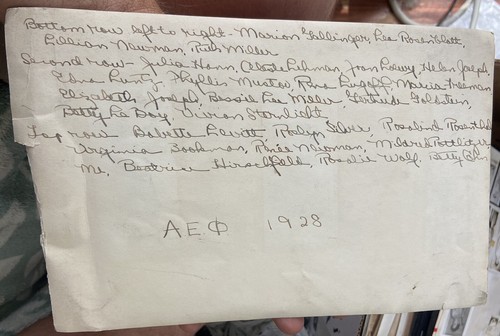 Bottom row left to right - Marion Gallinger, Lea Rosenblatt,
Lillian Newman, Ruth Miller
Second row - Julia Hann, Celeste Lehman, Joan Loewy, Helen Joseph,
Edna Lentz, Phyllis Mustov, Rena Marcia Freeman
Elizabeth Joseph, Bessie Lee Miller, Gertrude Goldstein,
Betty Le Boy, Vivian Stonlight
Top row Babette Levitt Roslyn Silver, Rosalind
Virginia Bookman, Renée Newman, Mildred Bottlitzer
Me, Beatrice Hirschfeld, Rosalie Wolf, Betty
ΑΕΦ 1928